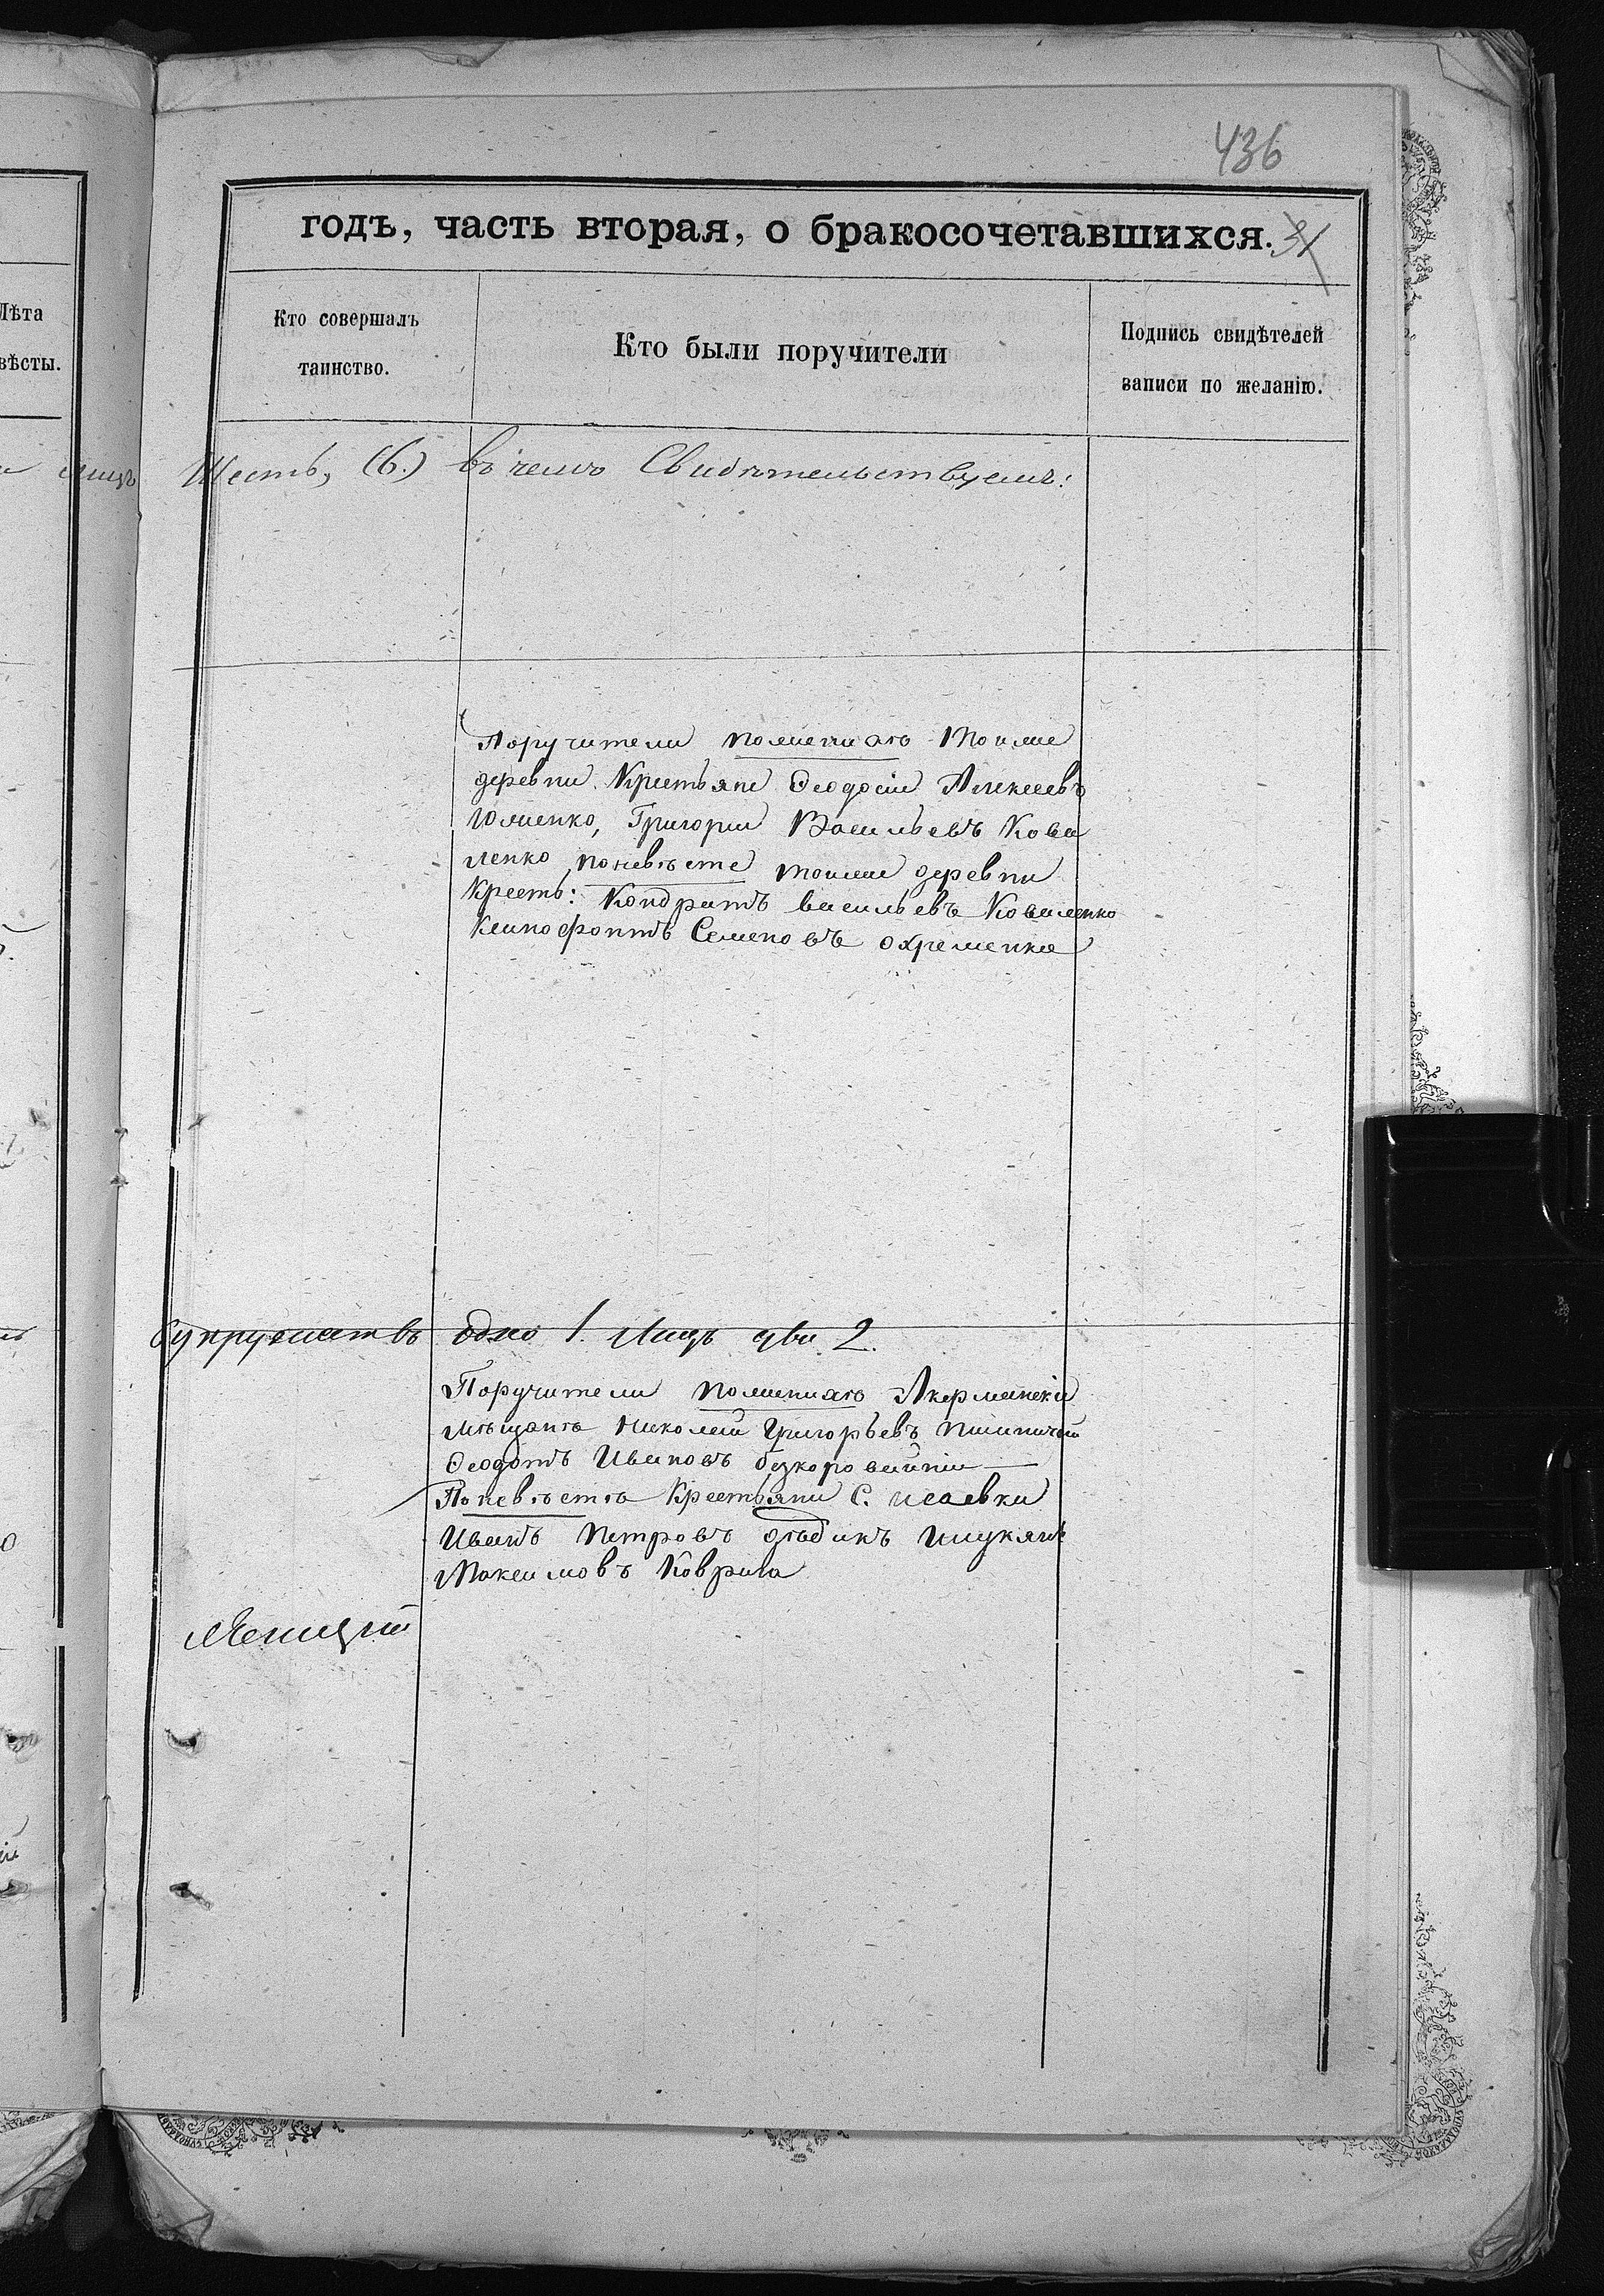 436
годъ, часть вторая, о бракосочетавшихся. 31
Лѣта
вѣсты.
Кто совершалъ
таинство.
Кто были поручители
Подпись свидѣтелей
записи по желанію.
лицъ Шесть, (6.) въ чемъ Свидѣтельствуемъ:
Поручители по женихѣ тоиже
деревни Крестьяне Ѳеодосій Алексеевъ
Юшенко, Григорій Васильевъ Кова
ленко, по невѣсте тоиже деревни
Кресть: Кондратъ васильевъ Коваленко
Ксинофонтъ Семеновъ охременко
Супружествъ одно 1. лицъ два 2.
Поручители по женихѣ Акерманскіе
мѣщане Николай Григорьевъ
Ѳеодотъ Ивановъ безкоровайній
По невѣсте Крестьяни С. исаевки
Иванъ Петровъ дѣдикъ
Максимовъ Коврига